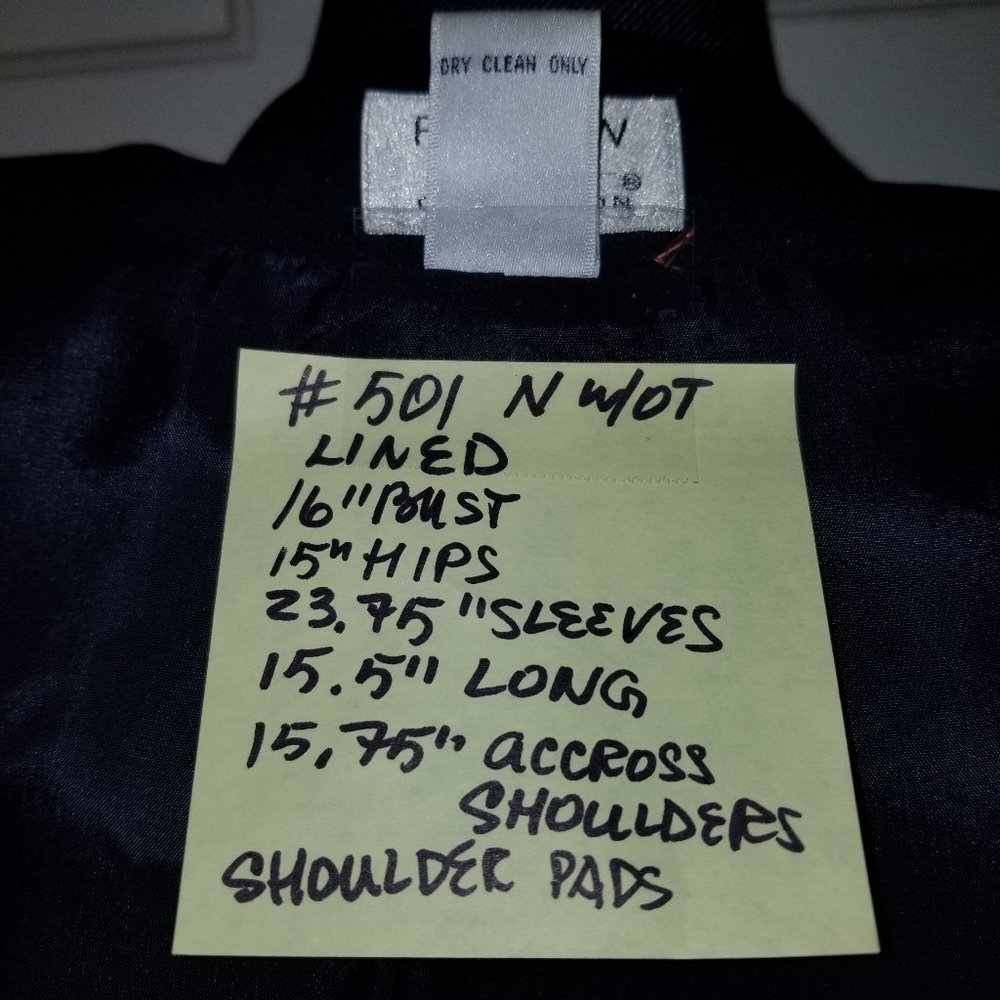 DRY CLEAN ONLY
#501 N W/OT
LINED
16" BUST
15" HIPS
23.75" SLEEVES
15.5" LONG
15.75" ACCROSS
SHOULDERS
SHOULDER PADS